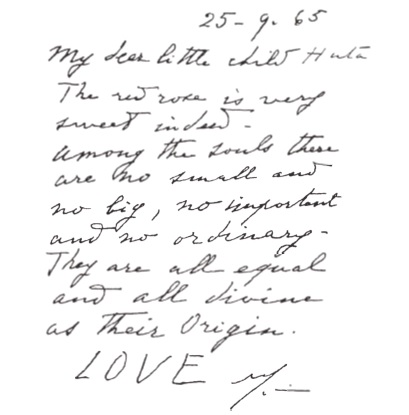 25-9.65
My dear little child Huta
The red rose is very
sweet indeed -
among the souls there
are no small and
no big, no important
and no ordinary -
They are all equal
and all divine
as their Origin.
LOVE M.